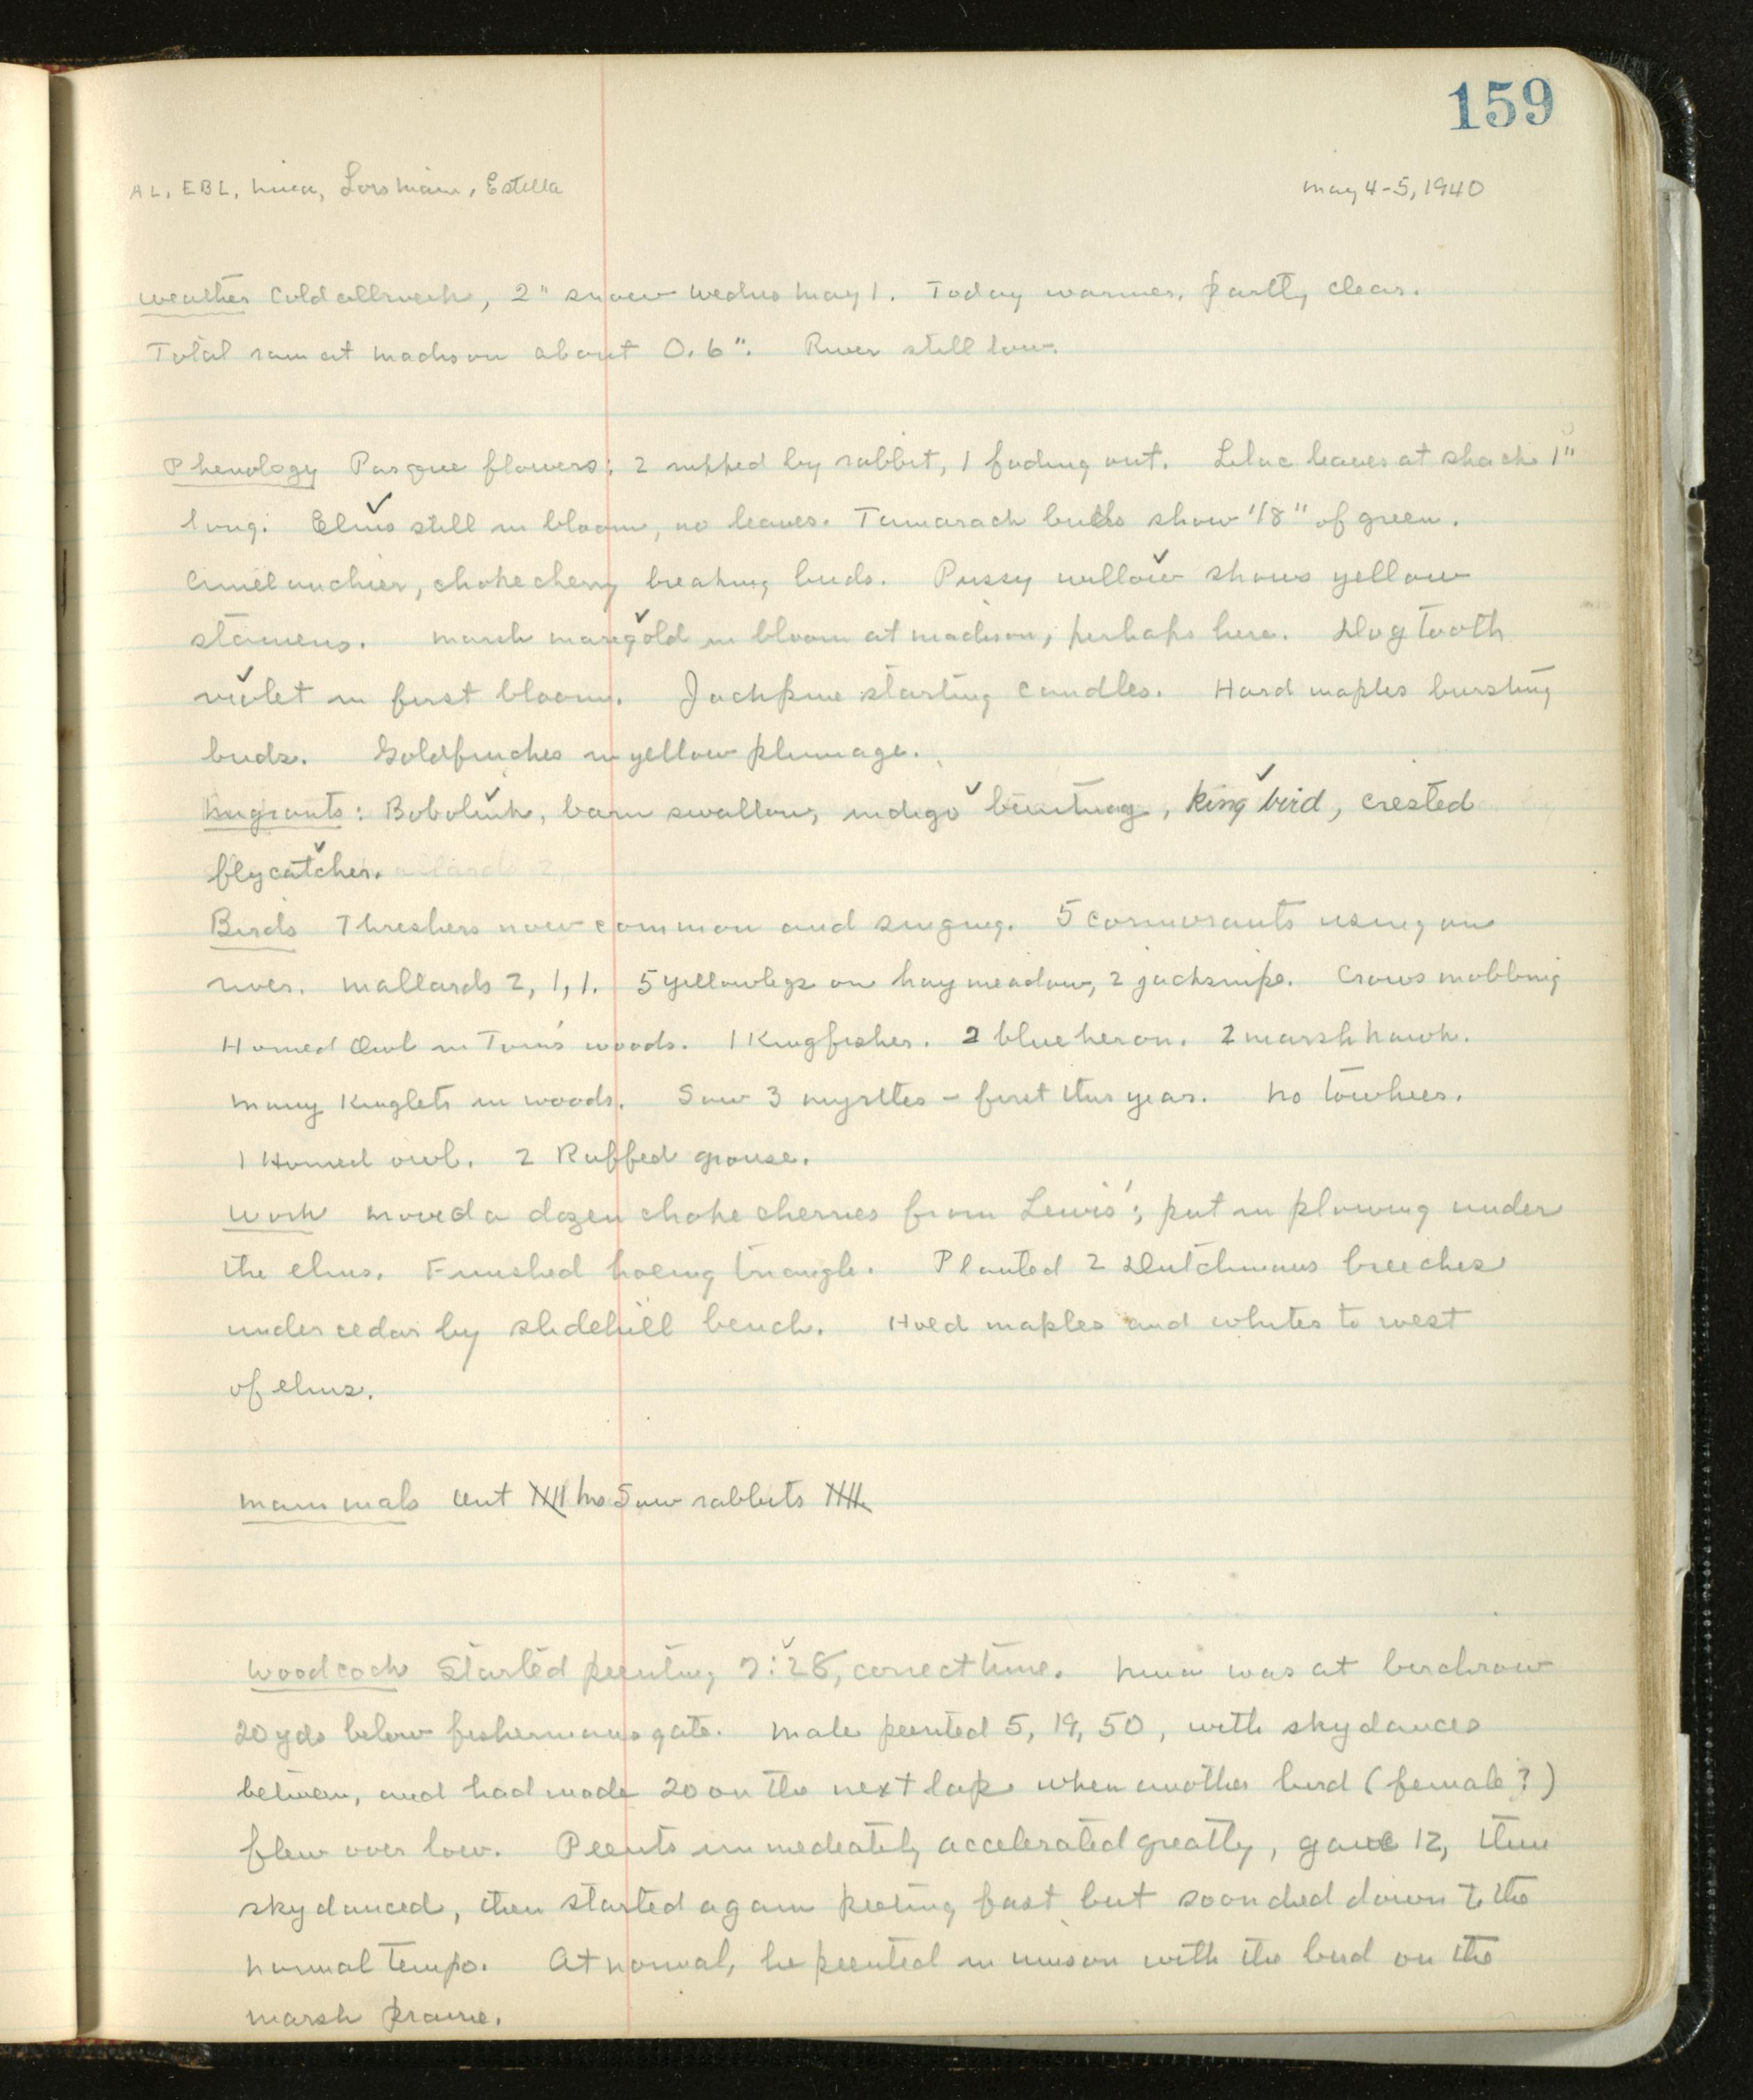 159
AL, EBL, Nina, Estella
May 4-5, 1940
Weather Cold all week, 2" snow Wednes May 1. Today warmer, partly clear.
Total rain at Madison about 0.6". River still low.
Phenology Pasque flowers: 2 nipped by rabbit, 1 fading out. Lilac leaves at shack 1"
long. Elms still in bloom, no leaves. Tamarack buds show 1/8" of green.
Amelanchier, chokecherry breaking buds. Pussy willow shows yellow
stamens. Marsh marigold in bloom at Madison, perhaps here. Dog tooth
violet in first bloom. Jackpine starting candles. Hard maples bursting
buds. Goldfinches in yellow plumage.
Migrants: Bobolink, barn swallow, indigo bunting, king bird, crested
flycatcher.
Birds Threshers now common and singing. 5 cormorants using on
river. Mallards 2, 1, 1. 5 yellowlegs on hay meadow, 2 jacksnipe. Crows mobbing
Horned Owl in Tom's woods. 1 Kingfisher. 2 blue heron. 2 marsh hawk.
Many Kinglets in woods. Saw 3 myrtles - first this year. No towhees.
1 Horned owl. 2 Ruffed grouse.
Work Moved a dozen chokecherries from Lewis'; put in plowing under
the elms. Finished hoeing triangle. Planted 2 Dutchmans breeches
under cedar by slidehill bench. Hoed maples and whites to west
of elms.
Mammals Saw rabbits
Woodcock Started peenting 7:28, correct time. Nina was at birchrow
20 yds below fishermans gate. Male peented 5, 19, 50, with skydances
between, and had made 20 on the next lap when another bird (female?)
flew over low. Peents immediately accelerated greatly, gave 12, then
skydanced, then started again peeting fast but soon died down to the
normal tempo. At normal, he peented in unison with the bird on the
marsh prairie.